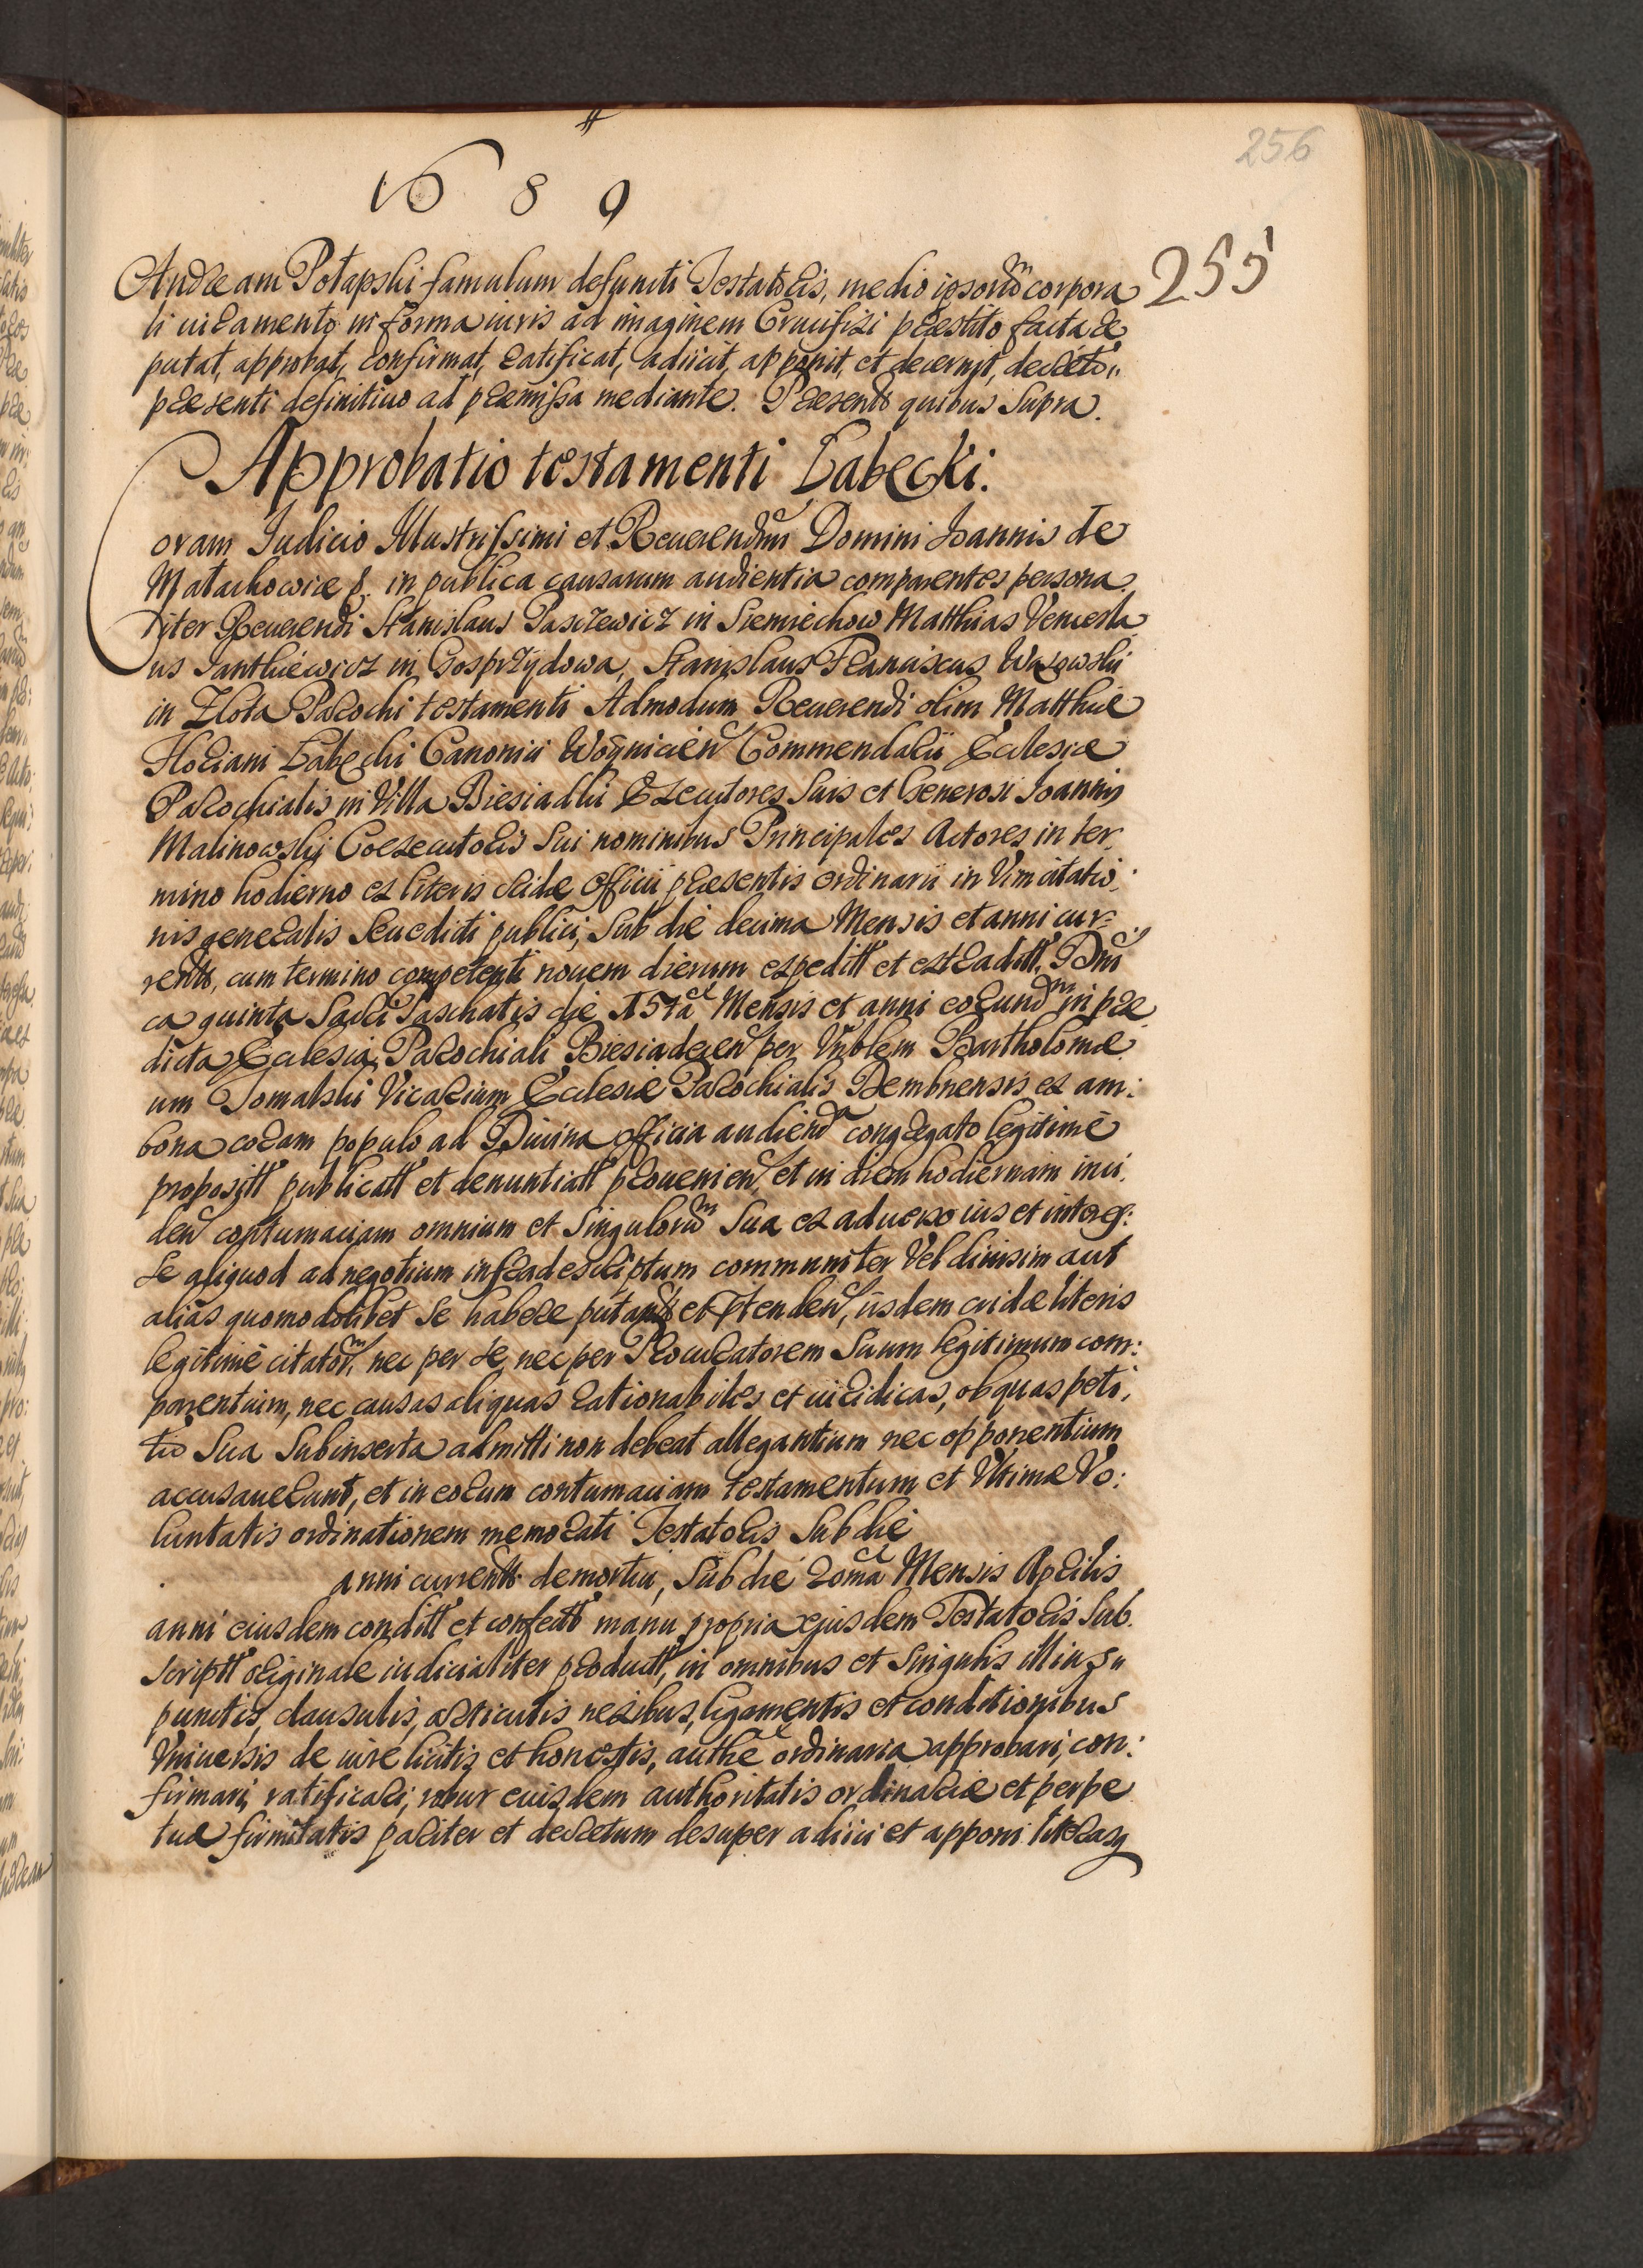 256
1689
255
Andream Potapski famulum defuncti Testatoris, medio ipsorūm corpora
li iuramento in forma iuris ad imaginem Crucifixi præstito facta re
putat, approbat, confirmat, ratificat, adiicit, apponit, et decernit, decreto„
præsenti definitiuo ad præmissa mediante. Præsentb quibus Supra.
Approbatio testamenti Łabęcki.
Coram Iudicio Illustrissimi et Reuerendmi Domini Ioannis de
Matachowice & in publica causarum audientia comparentes persona
liter Reuerendi Stanislaus Paszewicz in Siemiechow Matthias Vencesla
us Janthiewicz in Gosprzydowa, Stanislaus Franciscus Warowski
in Zlota Parochi testamenti Admodum Reuerendi olim Matthiæ
Floriani Łabęcki Canonici Woynicien Commendarii Ecclesiæ
Parochialis in Villa Biesiadki Executores Suis et Generosi Ioannis
Malinowsky Coexecutoris Sui nominibus Principales Actores in ter,
mino hodierno ex literis cridæ Officii præsentis ordinarii in Vim citatio,
nis generalis Seu edicti publici, Sub die decima Mensis et anni cur=
rentb, cum termino competenti nouem dierum expeditt et extraditt, Dni
ca quinta Sacri Paschatis die 15ta Mensis et anni eorundm in præ
dicta Ecclesia Parochiali Biesiadecen per Vnblem Bartholomæ
um Tomalski Vicarium Ecclesiæ Parochialis Dembnensis ex am:
bona coram populo ad Diuina officia audien congregato legitimè
propositt publicatt et denuntiatt prouenien, et in diem hodiernam inci,
den contumaciam omnium et Singulorm Sua ex aduerso ius et interes:
se aliquod ad negotium infrascriptum communiter Vel diuisim aut
alias quomodolibet se habere putantb et ptenden, iisdem cridæ literis
legitimè citatorm, nec per se, nec per Procuratorem Suum legitimum com:
parentium, nec causas aliquas rationabiles et iuridicas, ob quas peti,
tio Sua Subinserta admitti non debeat allegantium nec opponentium
accusauerunt, et in eorum contumaciam testamentum et Vltimæ Vo:
luntatis ordinationem memorati Testatoris Sub die
anni currentb demortui, Sub die 20ma Mensis Aprilis
anni eiusdem conditt et confectt manu propria eiusdem Testatoris Sub,
scriptt originale iudicialiter productt, in omnibus et Singulis illius„
punctis, clausulis, articulis nexibus, ligamentis et conditionibus
Vniuersis de iure licitis et honestis, authe ordinaria approbari, con:
firmari, ratificari, robur eiusdem authoritatis ordinariæ et perpe
tuæ firmitatis pariter et decretum desuper adiici et apponi literasq